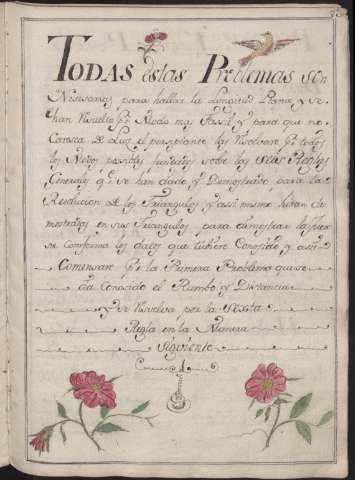 TODAS estas Problemas son
Nesesarios para hallar la Longitud Plana, y se
han Resuelto por el Modo mas Facil y para que no
Caresca de Luz el prinsipiante las Resolvere por todos
los Modos posibles fundados sobre las seis Reglas
Generales que se han dado, y Demostrado para la
Resolucion de los Triangulos, y assi mismo se han de
mostrar en sus Triangulos, para demostrar la
se Conforma los dates que tubiere Conosido y assi
Comensare por la Primera Problema que se
da Conosido el Rumbo y Distancia
y se Resuelva por la Sexta
Regla en la Manera
Siguiente